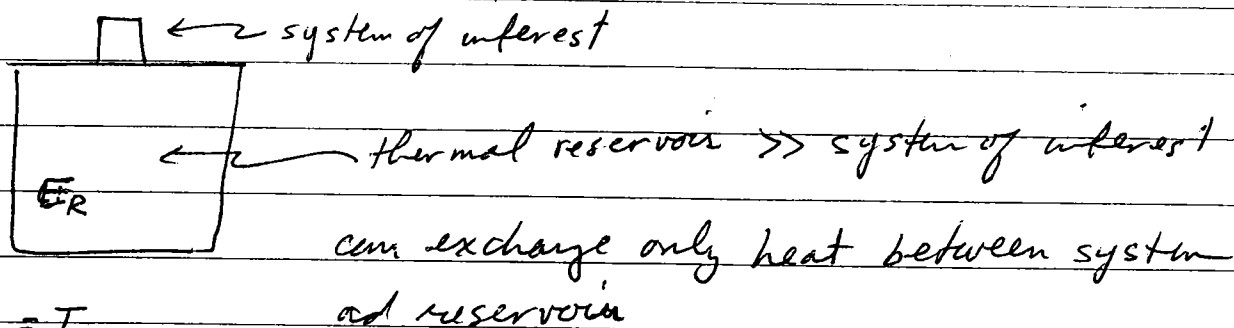 system of interest
thermal reservoir >> system of interest
E_R
can exchange only heat between system
= T
ad reservoir